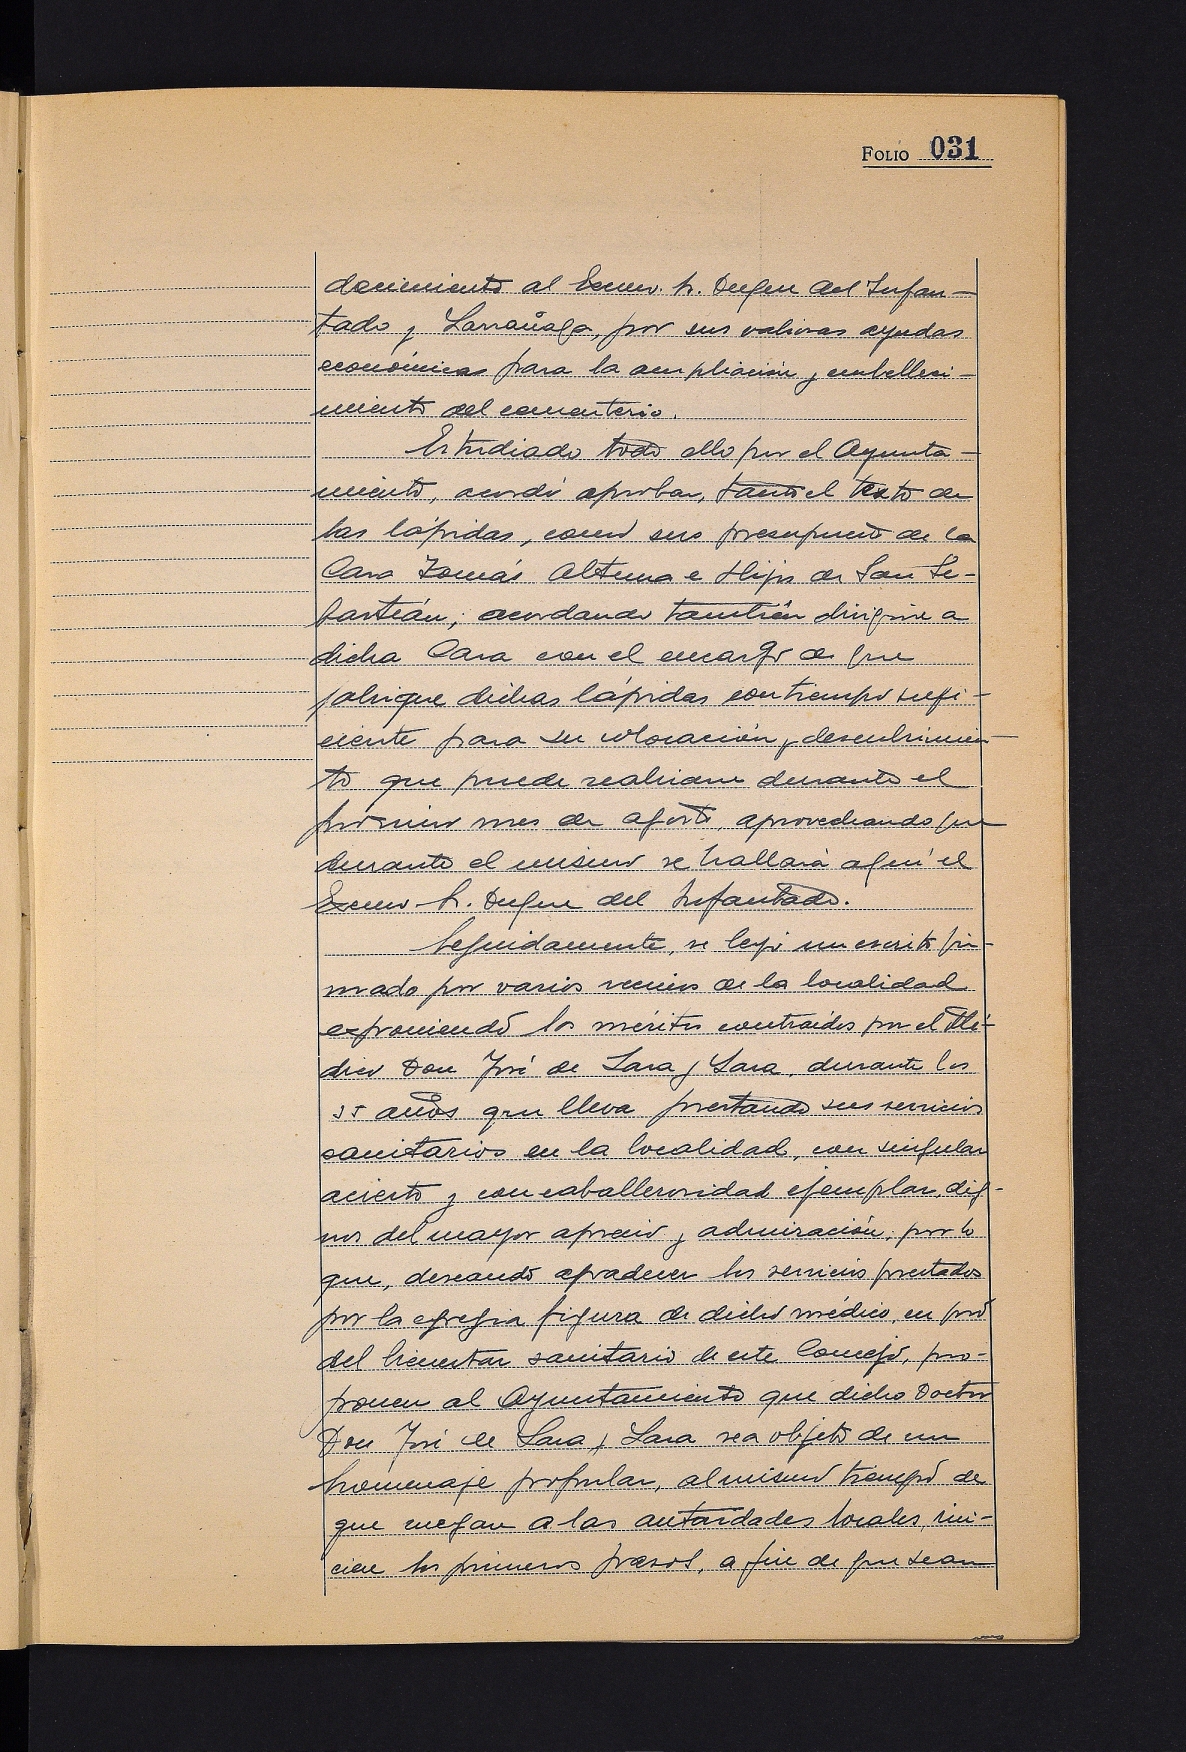 FOLIO 031
decimiento al Excmo. Sr. Duque del Infan-
tado y Larrañaga, por sus valiosas ayudas
económicas para la ampliación y embelleci-
miento del cementerio.
Estudiado todo ello por el Ayunta-
miento, acordó aprobar, tanto el texto de
las lápidas, como sus presupuesto de la
Casa Tomás Altuna e Hijos de San Se-
bastián; acordando también dirigirse a
dicha Casa con el encargo de que
fabrique dichas lápidas con tiempo sufi-
ciente para su colocación y descubrimien-
to que puede realizarse durante el
próximo mes de agosto, aprovechando que
durante el mismo se hallará aquí el
Excmo Sr. Duque del Infantado.
Seguidamente, se leyó un escrito fir-
mado por varios vecinos de la localidad
exponiendo los méritos contraídos por el Mé-
dico Don José de Lasa y Lasa, durante los
35 años que lleva prestando sus servicios
sanitarios en la localidad, con singular
acierto y con caballerosidad ejemplar, dig-
nos del mayor aprecio y admiración; por lo
que, deseando agradecer los servicios prestados
por la egregia figura de dicho médico, en pró
del bienestar sanitario de este Concejo, pro-
ponen al Ayuntamiento que dicho Doctor
Don José de Lasa y Lasa sea objeto de un
homenaje popular, al mismo tiempo de
que ruegan a las autoridades locales, ini-
cien los primeros pasos, a fin de que sean